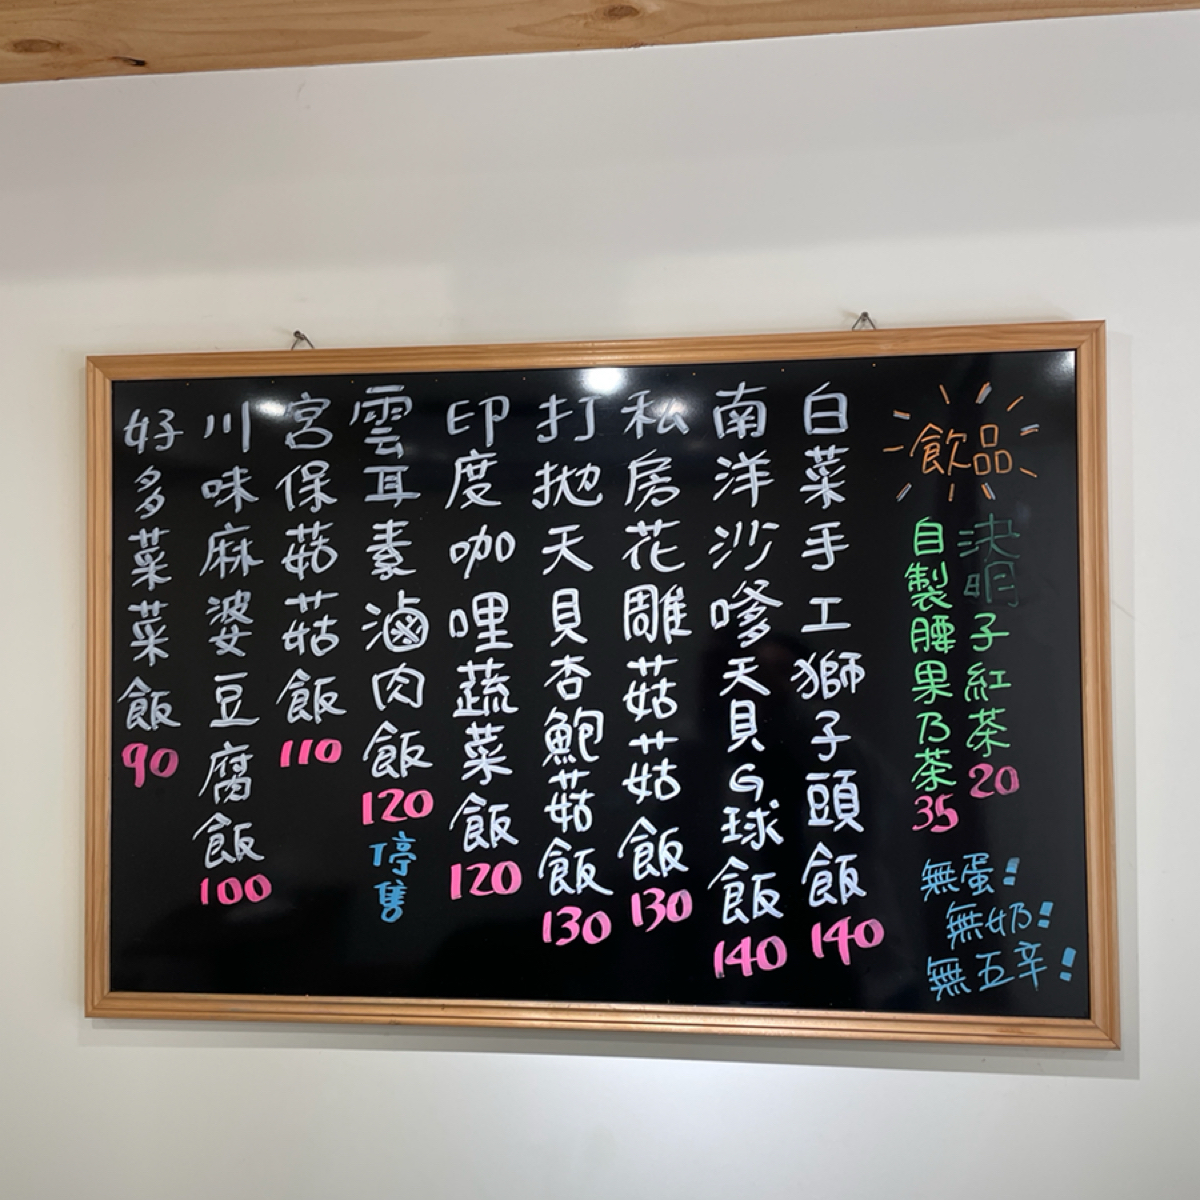 飲品
決明子紅茶20
自製腰果乃茶35
無蛋!
無奶!
無五辛!
白菜手工獅子頭飯140
南洋沙嗲天貝G球飯140
私房花雕菇菇飯130
打拋天貝杏鮑菇飯130
印度咖哩蔬菜飯120
雲耳素滷肉飯120停售
宮保菇菇飯110
川味麻婆豆腐飯100
好多菜菜飯90